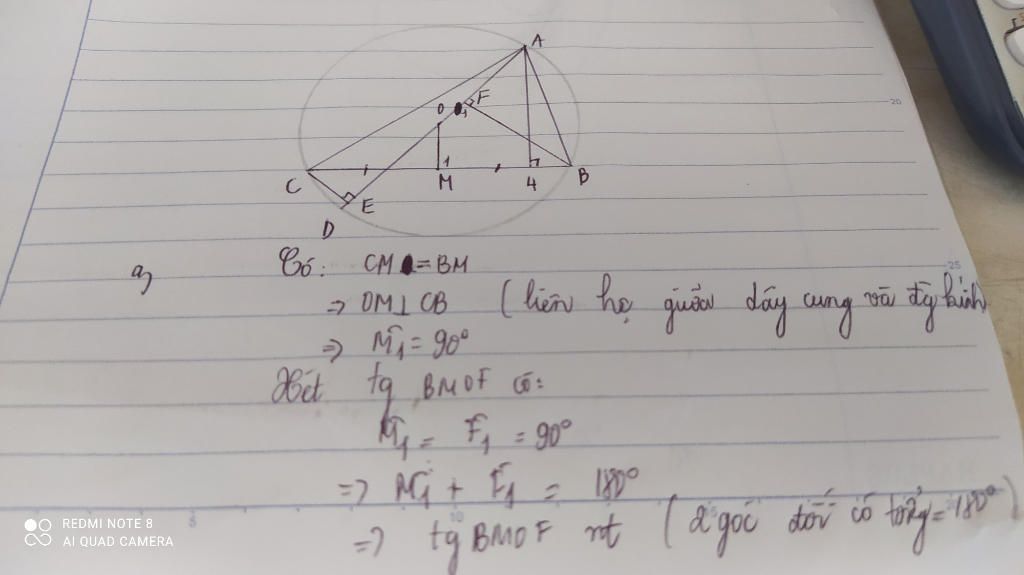 A
O
F
1
1
C
M
4
B
E
D
20
a,
Có: CM = BM
25
=> OM⊥CB (liên hệ giữa dây cung và đg kính)
=> M̂1 = 90°
Xét tg BMOF có:
M̂1 = F̂1 = 90°
=> M̂1 + F̂1 = 180°
=> tg BMOF nt (2 góc đối có tổng = 180°)
5
10
15
REDMI NOTE 8
AI QUAD CAMERA